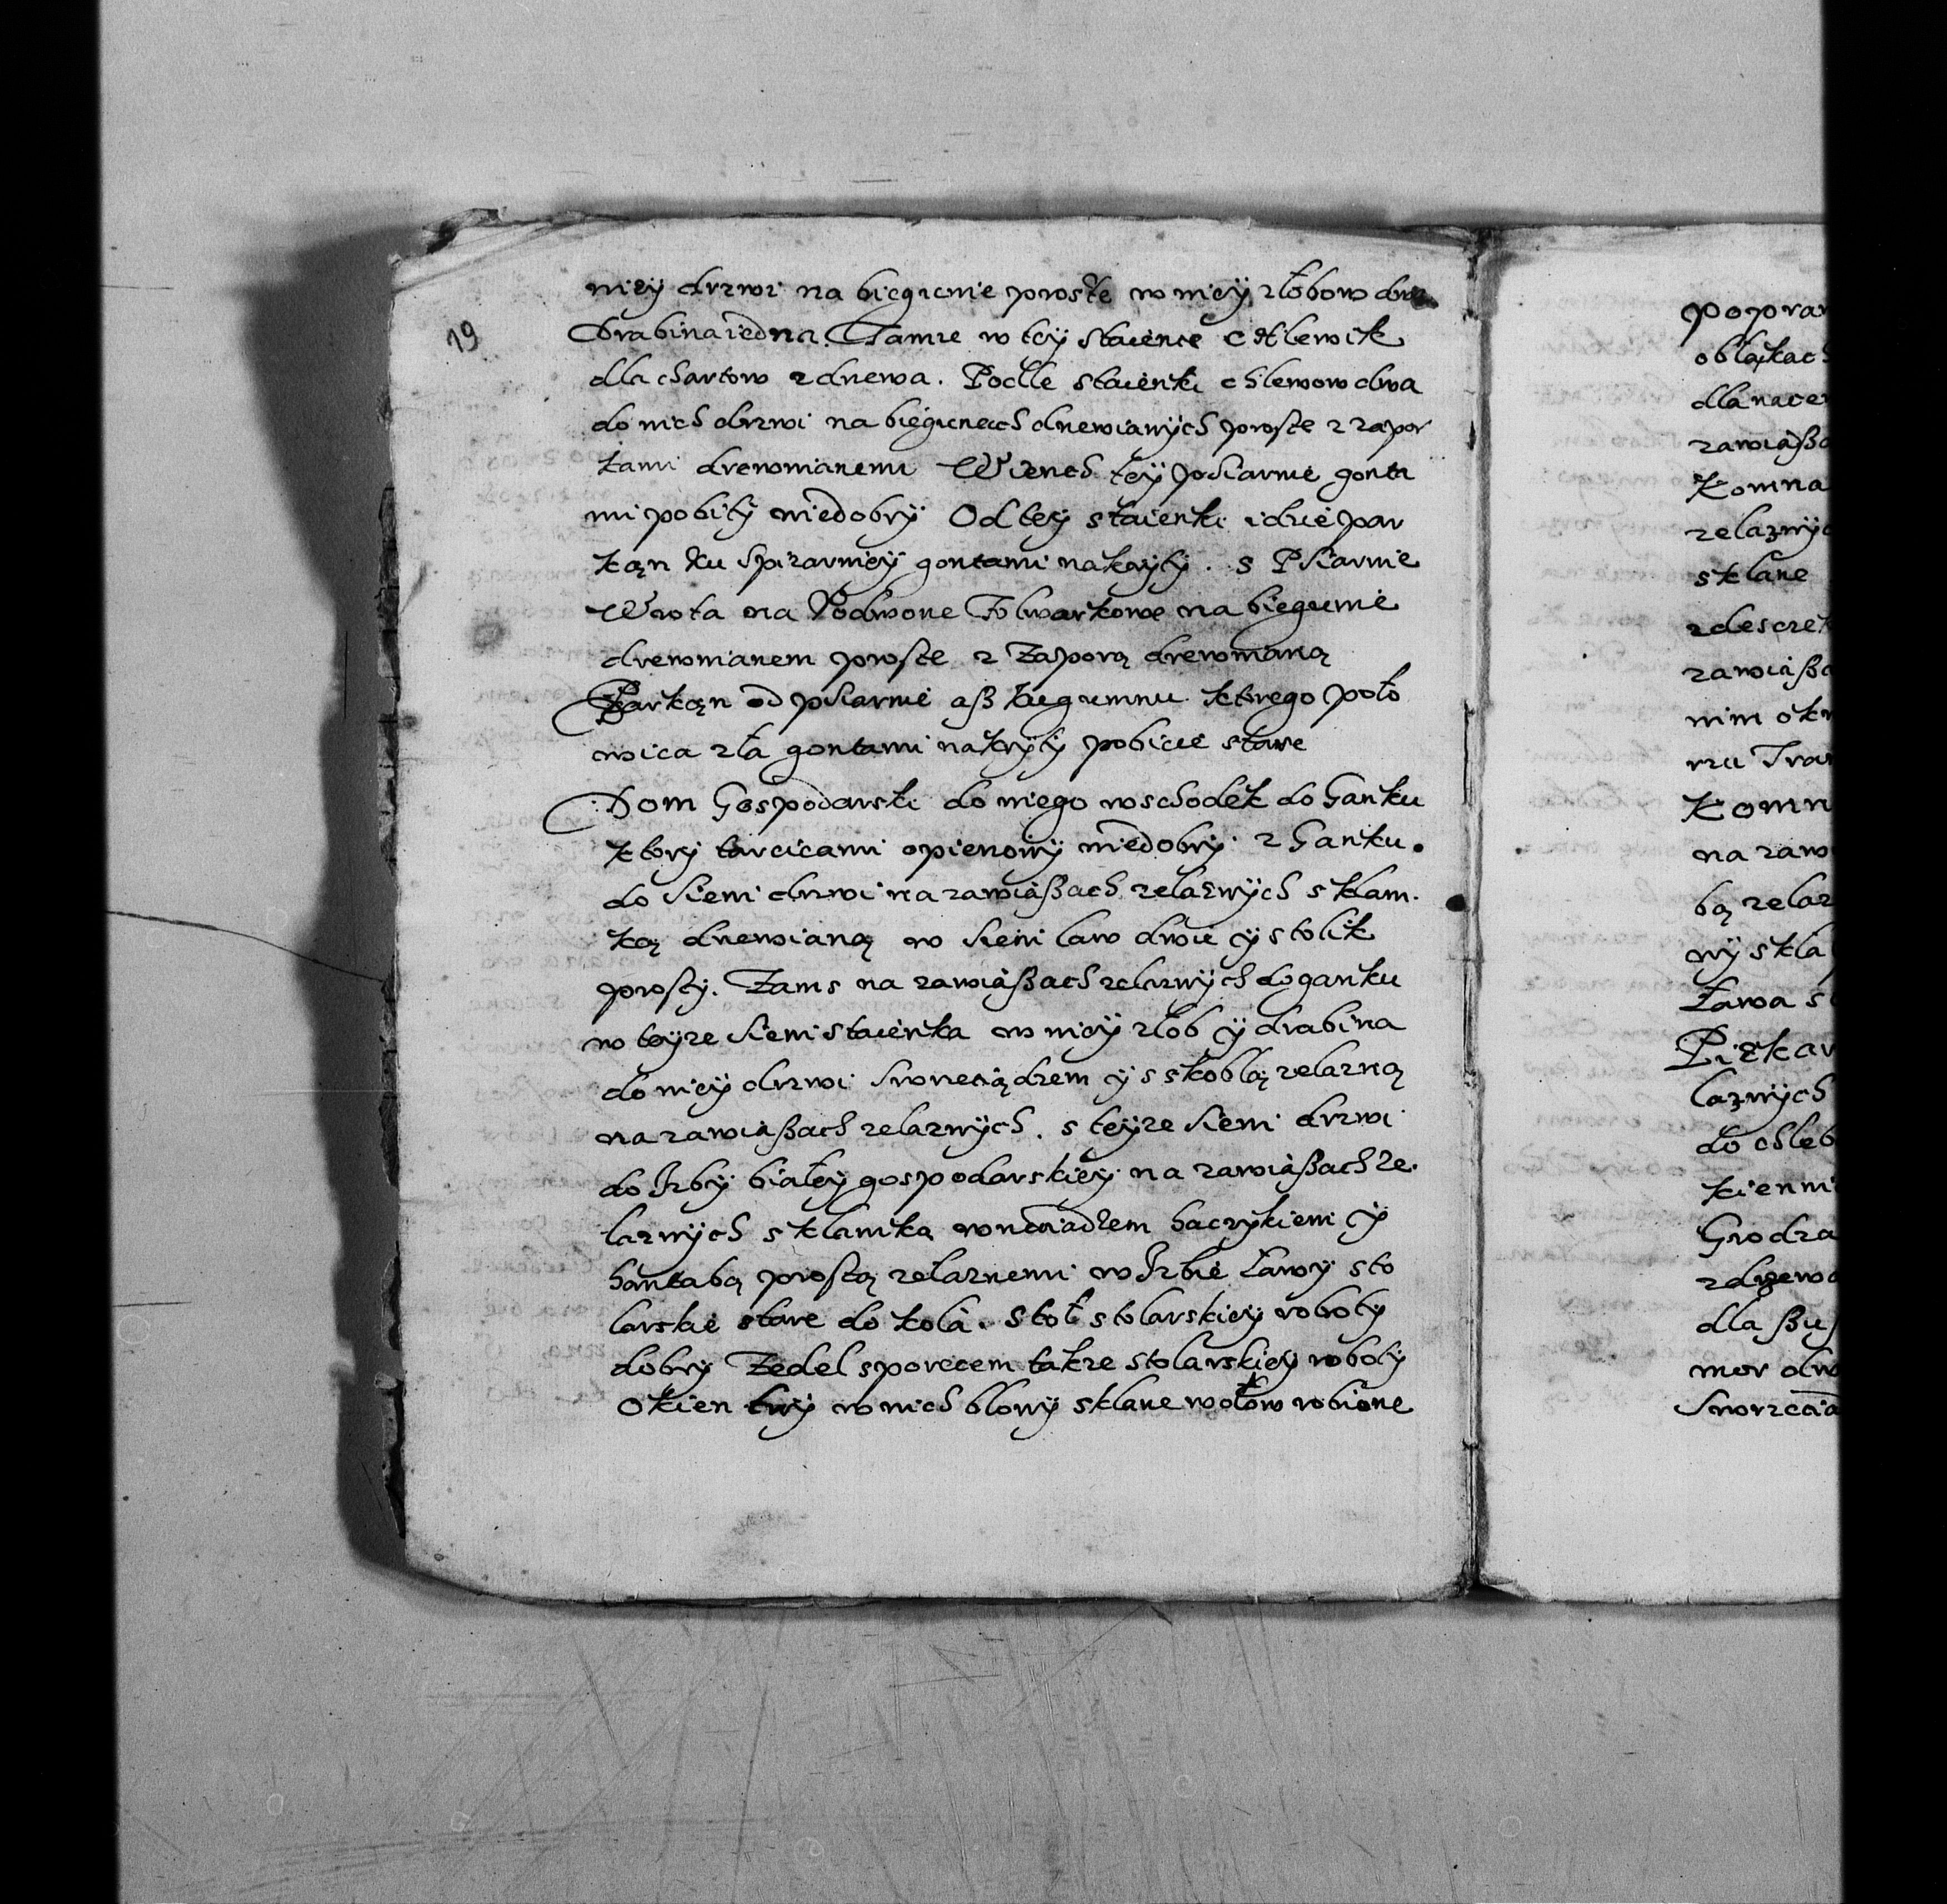 niey drzwi na biegunie proste w niey złobow dwa
19
Drabina iedna. Tamze w tey staience chlewik
dla chartow z drzewa. Podle staienki chlewow dwa
do nich drzwi na biegunach drzewianych proste z zapor
kami drewnianemi Wierzch tey psiarnie gonta
mi pobity niedobry Od tey staienki idzie par
kan ku spizarniey gontami nakryty. s Psiarnie
Wrota na Podworze Folwarkowe na biegunie
drewnianem proste z Zaporą drewnianą
Parkąn od psiarnie aß ku gumnu ktorego poło
wica zła gontami nakryty pobicie stare
Dom Gospodarski do niego wschodek do Ganku
ktory tarcicami opierzony niedobry z Ganku
do sieni drzwi na zawiaßach zelaznych s klam
ką drzewianą w sieni law dwie y stolik
prosty. Zams na zawiaßach zelaznych do ganku
w teyze sieni staienka w niey złob y drabina
do niey drzwi swrzeciądzem y s skoblą zelazną
na zawiaßach zelaznych. s teyze sieni drzwi
do Izby białey gospodarskiey na zawiaßach ze
laznych s klamką wrzeciadzem haczykiem y
hantabą prostą zelaznemi w Izbie Ławy sto
larskie stare do koła. Stoł stolarskiey roboty
dobry Zedel sporecem takze stolarskiey roboty
Okien trzy w nich błony sklane w ołow robione
popraw
obłąkach
dla nacz
zawiaßa
Komna
zelaznyc
sklane
zdeszcze
zawiaßa
nim okn
rzu Tra
Komn
na zaw
bą zelaz
ny skla
Ława s
Piekar
laznych
do chleb
kienni
Grodza
z drzewa
dla ßu
mor dw
Swrzecia